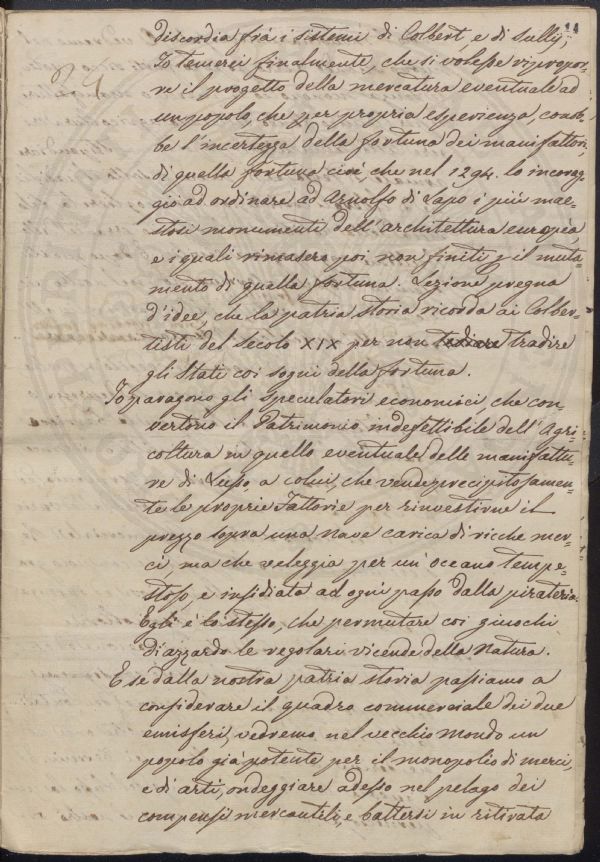 14
discordia fra i sistemi di Colbert, e di Sully;
Io temerei finalmente, che si volesse ripropor-
re il progetto della mercatura eventuale ad
un popolo, che per propria esperienza, conob-
be l'incertezza della fortuna dei manifattori,
di quella fortuna cioè che nel 1294. lo incorag-
giò ad ordinare ad Arnolfo di Lapo i più mae-
stosi monumenti dell'architettura europèa,
e i quali rimasero poi non finiti p il muta-
mento di quella fortuna. Lezione pregna
d'idee, che la patria storia ricorda ai Colber-
tisti del Secolo XIX per non tradire
gli Stati coi sogni della fortuna.
Io paragono gli speculatori economici, che con-
vertono il Patrimonio indefettibile dell'Agri-
coltura in quello eventuale delle manifattu-
re di Lusso, a colui, che vende precipitosamen-
te le proprie Fattorie per rinvestirne il
prezzo sopra una nave carica di ricche mer-
ci, ma che veleggia per un'oceano tempe-
stoso, e insidiato ad ogni passo dalla pirateria.
Egli è lo stesso, che permutare coi giuochi
di azzardo le regolari vicende della Natura.
E se dalla nostra patria storia passiamo a
considerare il quadro commerciale dei due
emisferi, vedremo nel vecchio Mondo un
popolo già potente per il monopolio di merci,
e di arti, ondeggiare adesso nel pelago dei
compensi mercantili, e battersi in ritirata